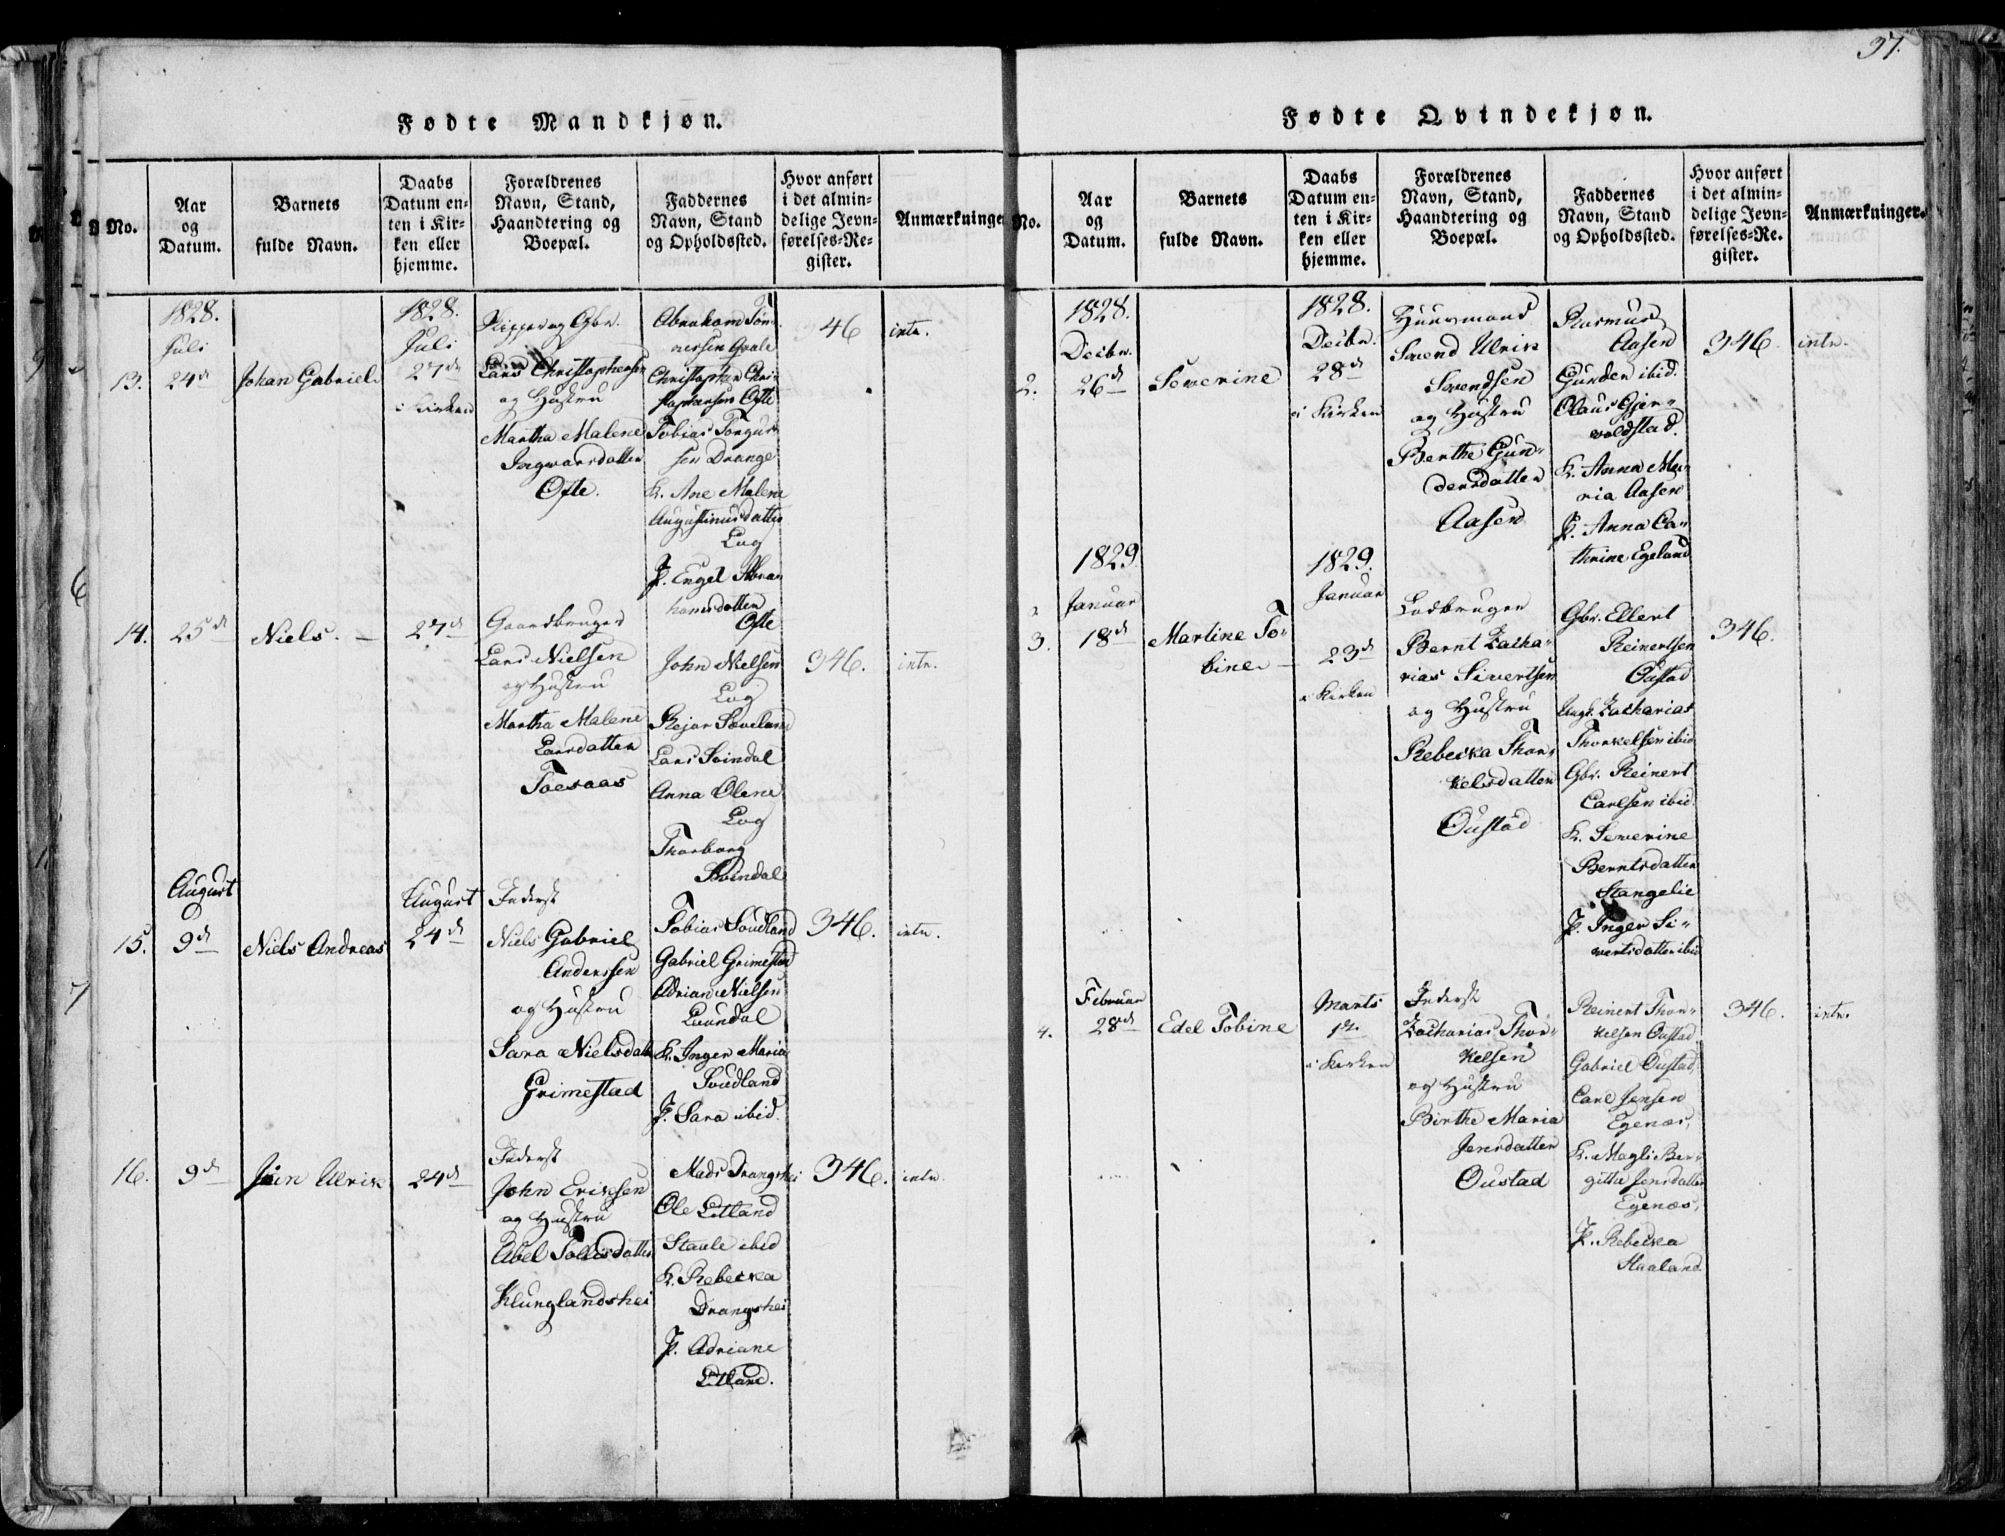 37.
Fødte Mandkjøn.
No.
Aar
og
Datum.
Barnets
fulde Navn.
Daabs
Datum en-
ten i Kir-
ken eller
hjemme.
Forældrenes
Navn, Stand,
Haandtering og
Boepæl.
Faddernes
Navn, Stand
og Opholdssted.
Hvor anført
i det almin-
delige Jevn-
førelses-Re-
gister.
Anmærkninger
13.
1828.
Juli
24d
Johan Gabriel
1828.
Juli
27d
i Kirken
Lars Christophersen
og Hustru
Martha Malene
Ingwarsdatter
Ofte.
Abraham Tøn-
nessen
Christopher Chri-
stophersen Ofte
Tobias Torgus-
sen Drange
K. Ane Malene
Augustinusdatter
Log
P. Engel Abra-
hamsdatter
Ofte
46
intr.
14.
25d
Niels.
27d
Gaardbruger
Lars Nielsen
og Hustru
Martha Malene
Larsdatter
Toesaas
John Nielsen
Log
Rejar Søveland
Lars Svindal
Anna Olene
Log
Thorborg
Svindal
346.
intr.
15.
August
9d
Niels Andreas
August
24d
Inderst
Niels Gabriel
Anderssen
og Hustru
Sara Nielsdatt
Grimestad
Tobias Soudland
Gabriel Grimestad
Adrian Nielsen
Luundal
K. Inger Maria
Soudland
P. Sara ibid.
346.
intr.
16.
9d
Jøin Ulrik
24d
Inderst
John Eriksen
og Hustru
Abel Tollisdatter
Klunglandshei
Mads Drangshei
Ole Litland
Staale ibid
K. Rebecka
Drangshei
P. Adriane
Litland.
346.
intr.
Fødte Qvindekjøn.
No.
Aar
og
Datum.
Barnets
fulde Navn.
Daabs
Datum en-
ten i Kir-
ken eller
hjemme.
Forældrenes
Navn, Stand,
Haandtering og
Boepæl.
Faddernes
Navn, Stand
og Opholdssted.
Hvor anført
i det almin-
delige Jevn-
førelses-Re-
gister.
Anmærkninger.
2.
1828.
Decbr.
26d
Severine
1828.
Decbr.
28d
i Kirken
Huusmand
Svend Ulrik
Svendsen
og Hustru
Berthe Gun-
dersdatter
Aasen
Rasmus
Aasen
Gunder ibid.
Olaus Gjer-
voldstad.
K. Anna Ma-
ria Aasen
P. Anna Ca-
thrine Egeland
346.
intr.
3.
1829.
Januar
18d
Martine To-
bine
1829.
Januar
23d
i Kirken
Lodbruger
Bernt Zacha-
rias Sivertsen
og Hustru
Rebecka Thor-
kelsdatter
Oustad
Gbr. Ellert
Reinertsen
Oustad
Ungk. Zacharias
Thorkelsen ibid
Gbr. Reinert
Carlsen ibid.
K. Severine
Berntsdatter
Stangelie
P. Inger Si-
vertsdatter ibid
346.
4.
Februar
28d
Edel Tobine
Marts
1te
i Kirken
Inderst
Zacharias Thor-
kelsen
og Hustru
Birthe Maria
Jensdatter
Oustad
Reinert Thor-
kelsen Oustad.
Gabriel Oustad.
Carl Jensen
Egenæs,
K. Magli Ber-
gitte Jensdatter
Egenæs,
P. Rebecka
Haaland
346.
intr.